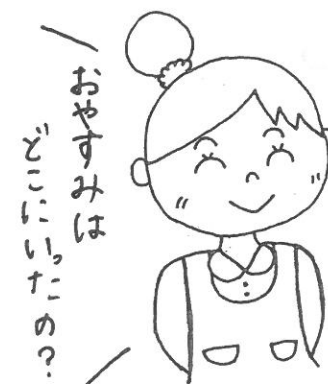 おやすみは
どこにいったの？